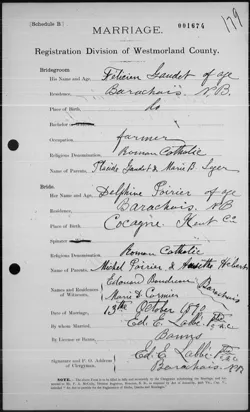 [Schedule B]
001674
179
MARRIAGE.
Registration Division of Westmorland County.
Bridegroom
His Name and Age, Felicien Gaudet of age
Residence, Barachois N.B.
Place of Birth, do
Bachelor
Occupation, farmer
Religious Denomination, Roman Catholic
Name of Parents, Placide Gaudet & Marie B.
Bride.
Her Name and Age, Delphine Poirier of age
Residence, Barachois, NB
Place of Birth, Cocagne Kent Co
Spinster
Religious Denomination, Roman Catholic
Name of Parents, Michel Poirier & Hebert
Names and Residences of Witnesses, Edouard Boudreau Barachois
Marie D. Cormier
13th October 1890
By whom Married, Ed. E. Labbé
By License or Banns, Banns
Signature and P. O. Address of Clergyman, Ed. E. Labbé
Barachois. NB